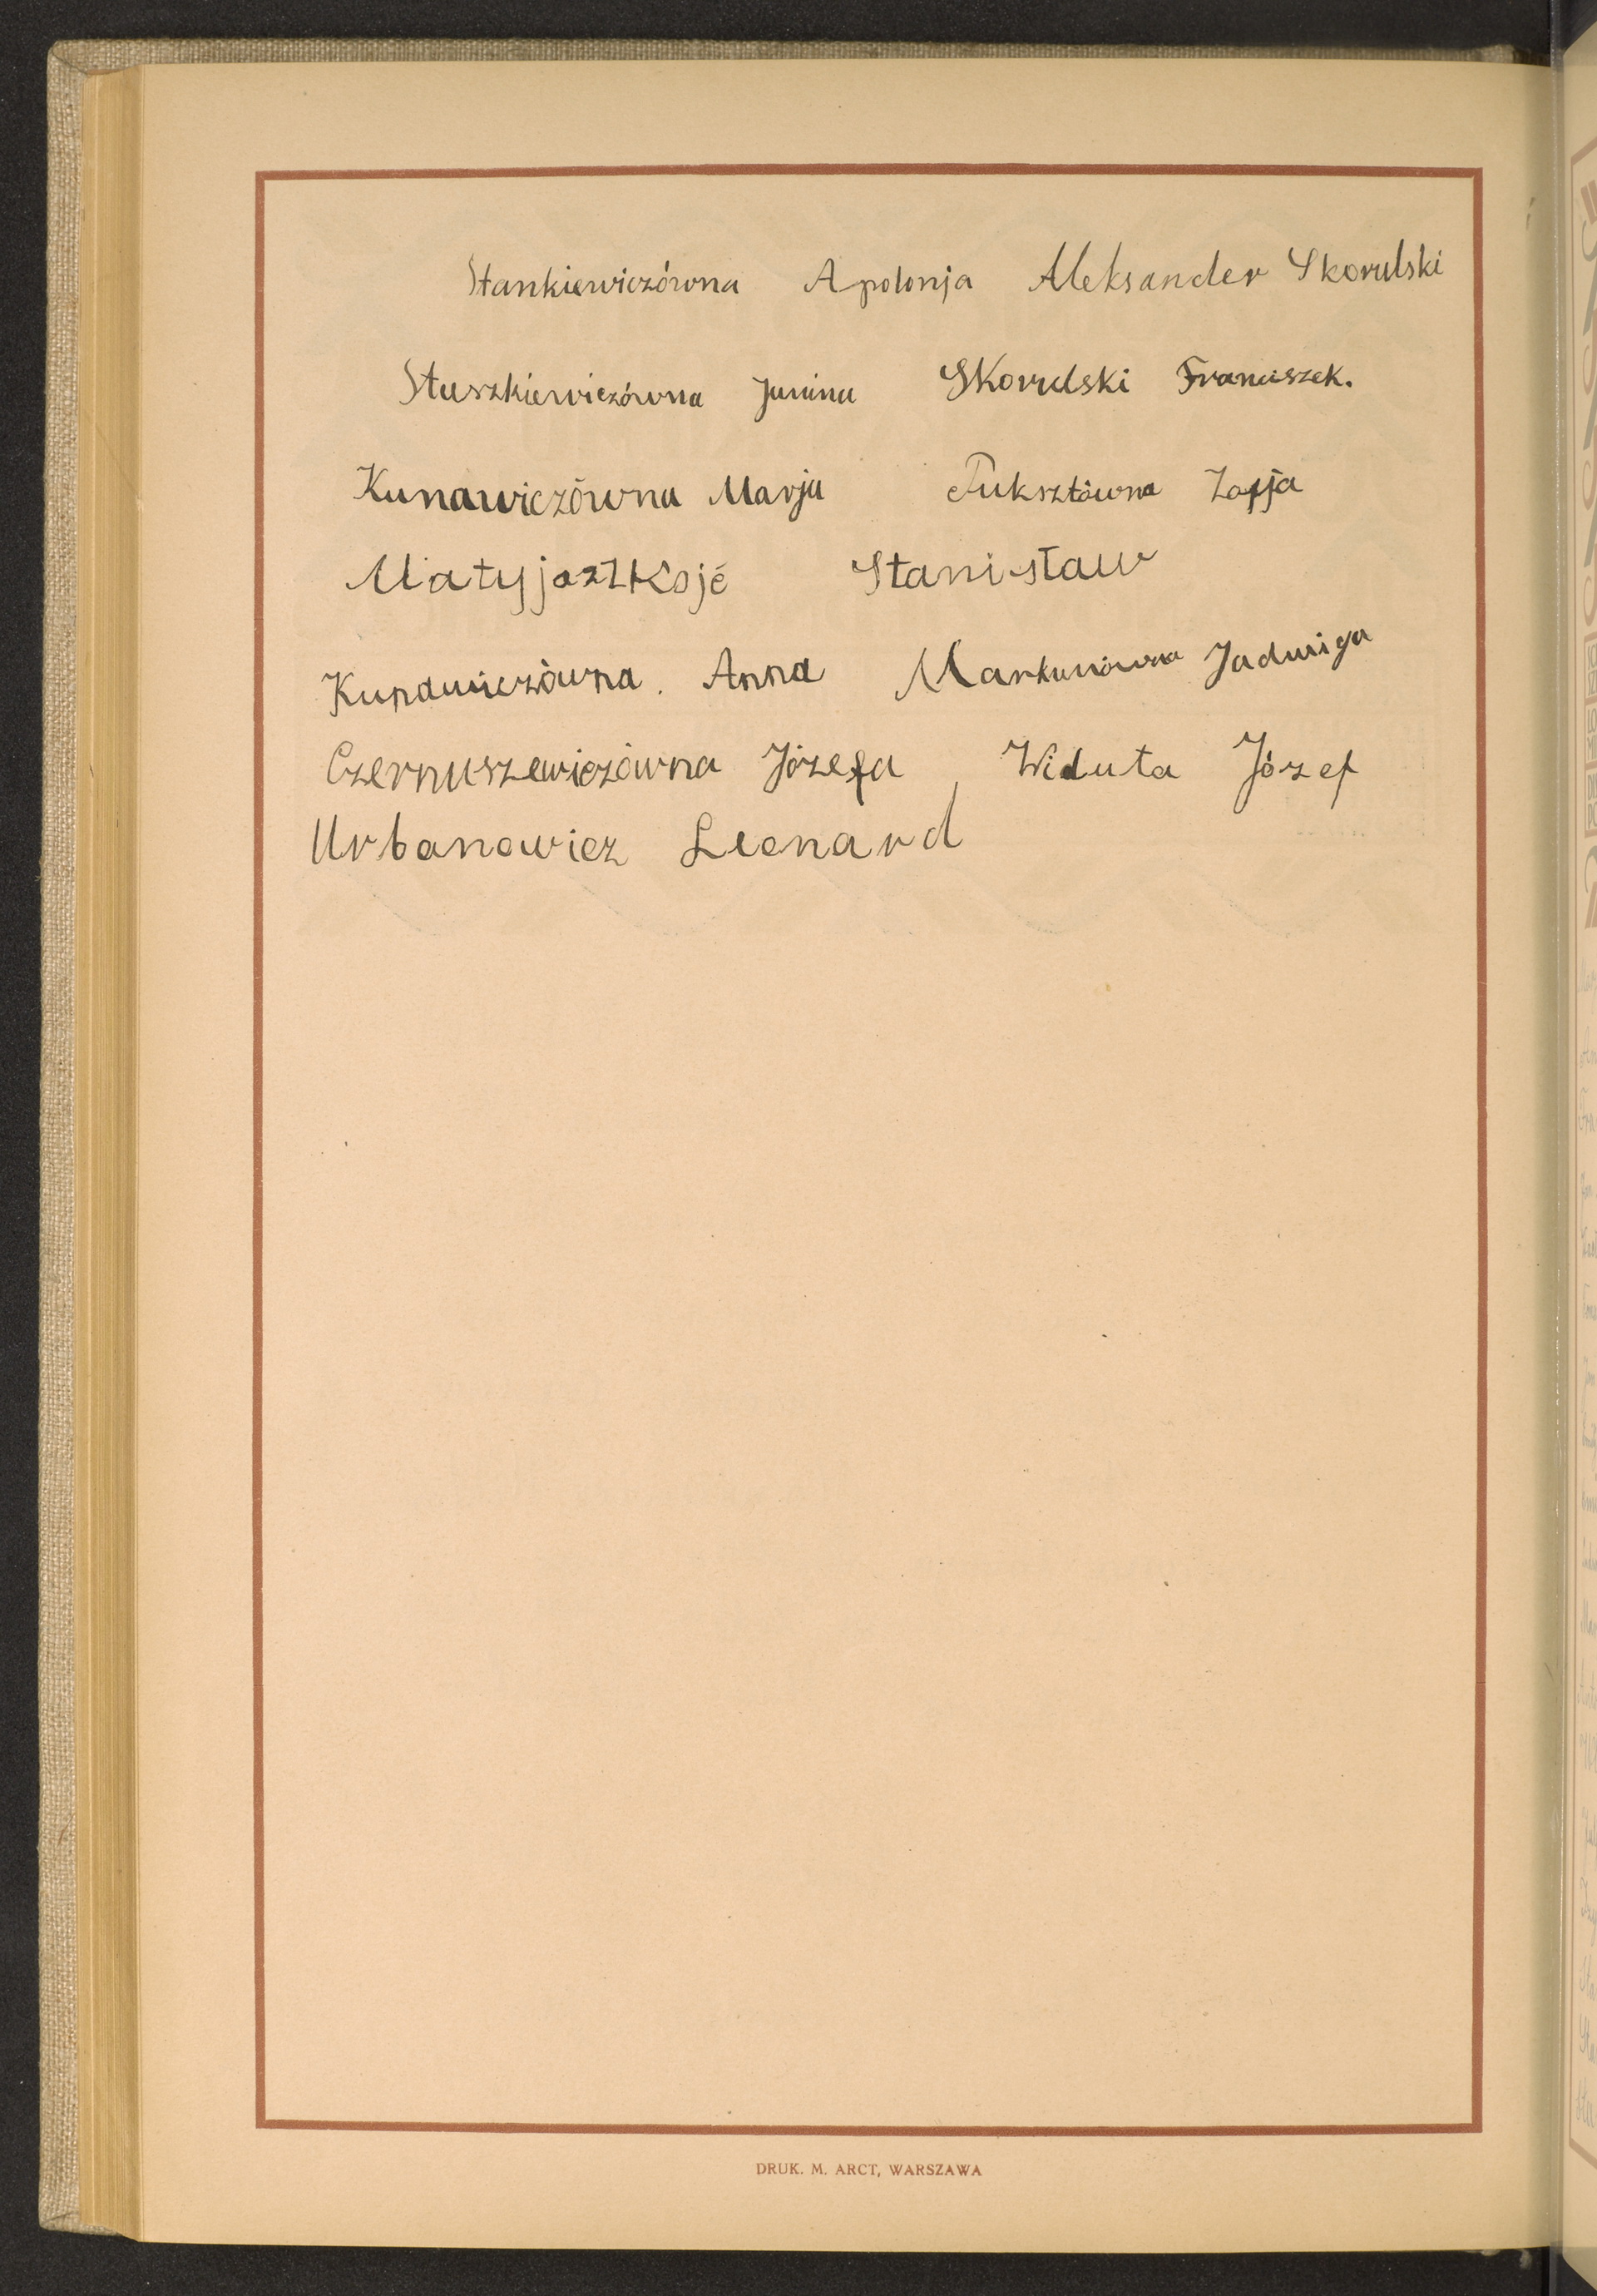 Stankiewiczówna Apolonja Aleksander Skorulski
Staszkiewiczówna Janina Skorulski Franciszek.
Kunawiczówna Marja Puksztówna Zofja
Stanisław
Kunawiczówna. Anna Markunówna Jadwiga
Czernuszewiczówna Józefa Widuta Józef
Urbanowicz Leonard
DRUK. M. ARCT, WARSZAWA